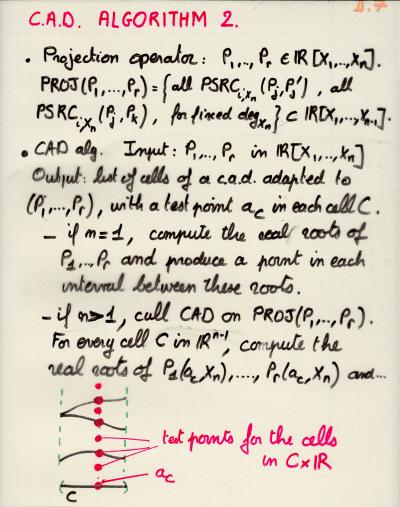 C.A.D. ALGORITHM 2.
• Projection operator: P₁,.., Pᵣ ∈ ℝ[X₁,..,Xₙ].
PROJ(P₁,...,Pᵣ) = {all PSRCᵢ,ₓₙ(Pⱼ,Pⱼ'), all
PSRCᵢ,ₓₙ(Pⱼ,Pₖ), for fixed degₓₙ} ⊂ ℝ[X₁,..,Xₙ₋₁].
• CAD alg. Input: P₁,.., Pᵣ in ℝ[X₁,..,Xₙ]
Output: list of cells of a c.a.d. adapted to
(P₁,...,Pᵣ), with a test point a_c in each cell C.
– if n=1, compute the real roots of
P₁,..,Pᵣ and produce a point in each
interval between these roots.
– if n>1, call CAD on PROJ(P₁,..,Pᵣ).
For every cell C in ℝⁿ⁻¹, compute the
real roots of P₁(a_c,Xₙ),...., Pᵣ(a_c,Xₙ) and...
test points for the cells
in C×ℝ
a_c
C